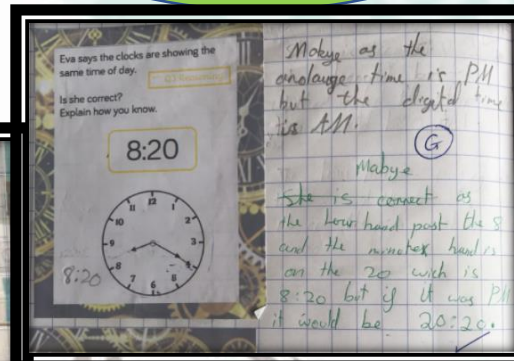 Eva says the clocks are showing the
same time of day.
Is she correct?
Explain how you know.
8:20
12
1
2
3
4
5
6
7
8
9
10
11
8:20
Mabye as the
anolauge time is PM
but the digital time
is AM.
G
Mabye
She is correct as
the hour hand past the 8
and the minutes hand is
on the 20 wich is
8:20 but if it was PM
it would be 20:20.